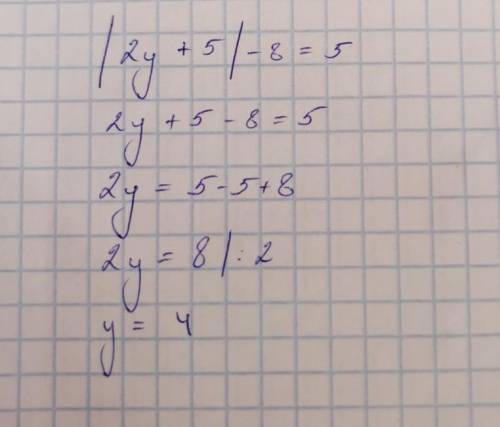 |2y + 5| - 8 = 5
2y + 5 - 8 = 5
2y = 5 - 5 + 8
2y = 8 | : 2
y = 4